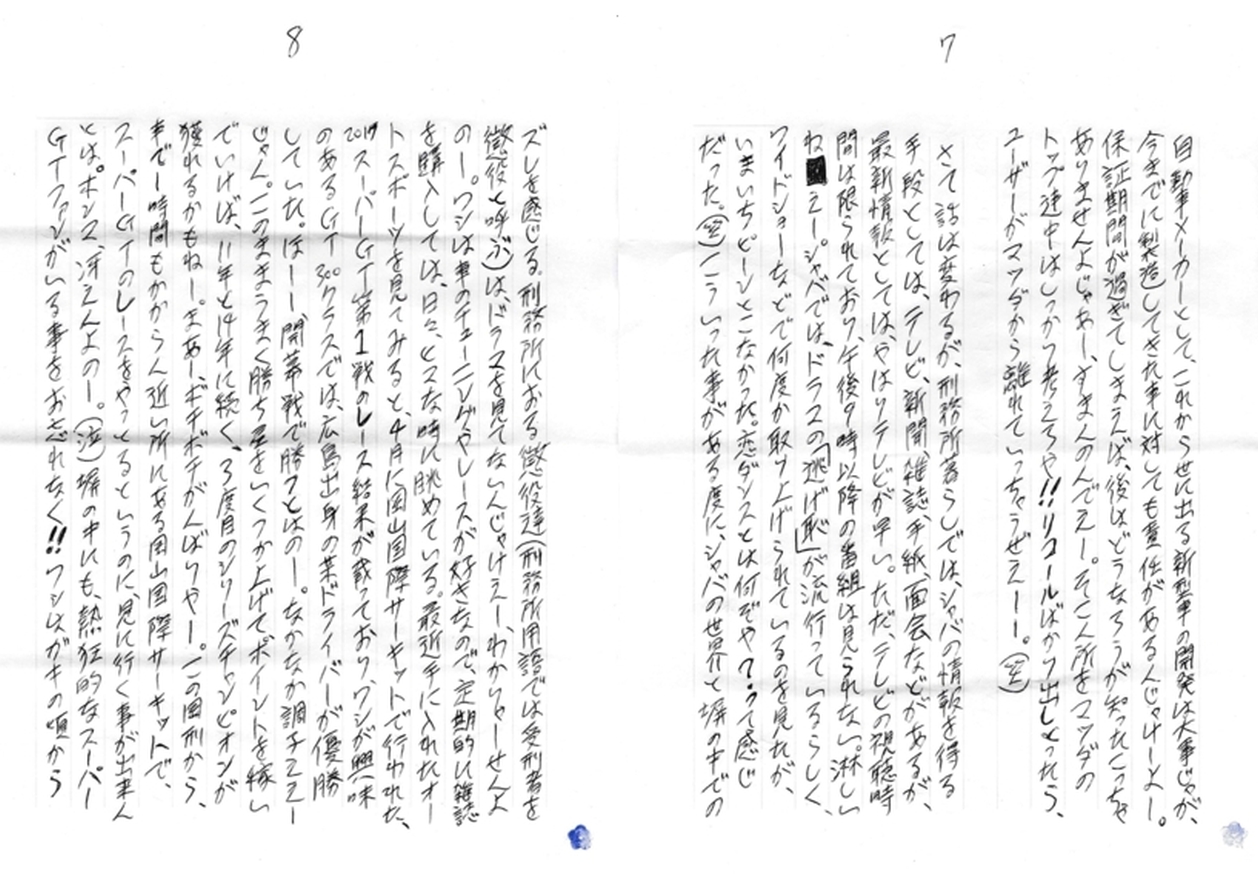 7
自動車メーカーとして、これから世に出る新型車の開発は大事じゃが、
今までに製造してきた車に対しても責任があるんじゃけーよー。
保証期間が過ぎてしまえば、後はどうなろうが知ったこっちゃ
ありませんよじゃあー、すまんのんでえー。そこん所をマツダの
トップ連中はしっかり考えろや!!リコールばかり出しとったら、
ユーザーがマツダから離れていっちゃうぜえーー。(笑)
さて話は変わるが、刑務所暮らしでは、シャバの情報を得る
手段としては、テレビ、新聞、雑誌、手紙、面会などがあるが、
最新情報としてはやはりテレビが早い。ただ、テレビの視聴時
間は限られており、午後9時以降の番組は見られない。淋しい
ねえー。シャバでは、ドラスの「逃げ恥」が流行っているらしく、
ワイドショーなどで何度か取り上げられているのを見たが、
いまいちピーンとこなかった。恋ダンスとは何ぞや?って感じ
だった。(笑)こういった事がある度に、シャバの世界と塀の中での
8
ズレを感じる。刑務所におる懲役達(刑務所用語では受刑者を
懲役と呼ぶ)は、ドラスを見てないんじゃけえー、わかりゃーせんよ
のー。ワシは車のチューニングやレースが好きなので、定期的に雑誌
を購入しては、日々、ヒマな時に眺めている。最近手に入れたオー
トスポーツを見てみると、4月に岡山国際サーキットで行われた、
2017スーパーGT第1戦のレース結果が載っており、ワシが興味
のあるGT300クラスでは、広島出身の某ドライバーが優勝
していた。ほーー、開幕戦で勝つとはのー。なかなか調子ええー
じゃん。このままうまく勝ち星をいくつか上げてポイントを稼い
でいけば、11年と14年に続く、3度目のシリーズチャンピオンが
獲れるかもねー。まあー、ボチボチがんばりやー。この岡刑から、
車で1時間もかからん近い所にある岡山国際サーキットで、
スーパーGTのレースをやっとるというのに、見に行く事が出来ん
とは。ホンマ、冴えんよのー。(泣)塀の中にも、熱狂的なスーパー
GTファンがいる事をお忘れなく!!ワシはガキの頃から